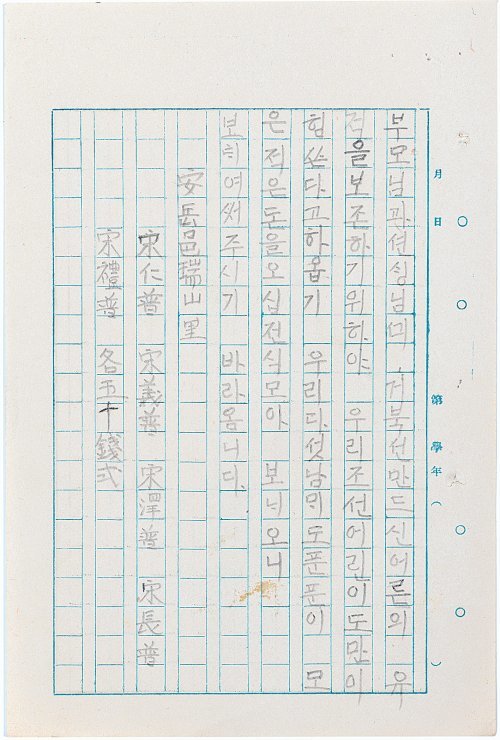 月 日 第 學年 ( )
부모님과션싱님미 거북션만드신어른의 유
적을보존하기위하야 우리조선어린이도만이
힘쓴다고하옵기 우리다섯남믜도푼푼이 모
은적은돈을오십전식모아 보ᄂᆡ오니
보ᄐᆡ여써주시기 바라옴니다.
安岳邑瑞山里
宋仁普 宋義普 宋澤普 宋長普
宋禮普 各五十錢式